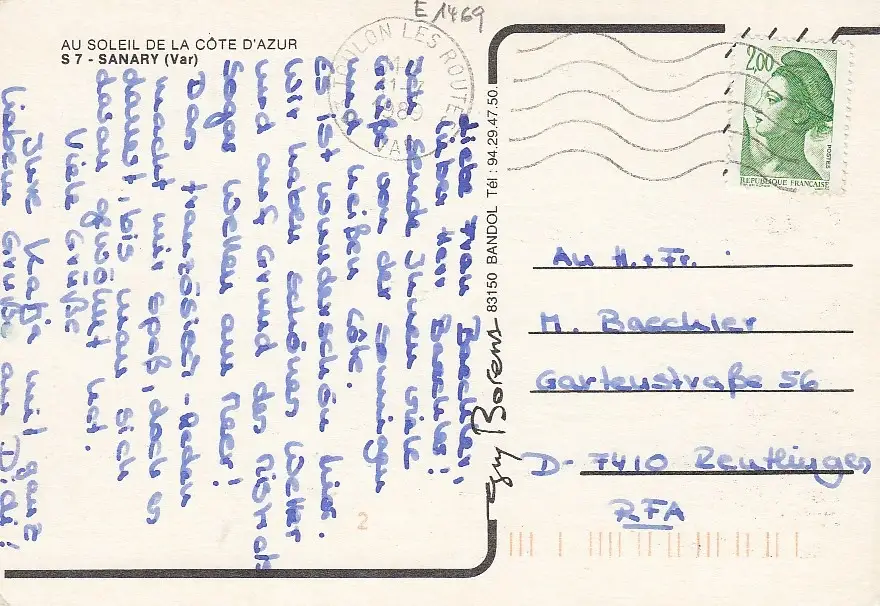 E 1469
AU SOLEIL DE LA CÔTE D'AZUR
S 7 - SANARY (Var)
TOULON LES ROUTES
VAR
2,00
POSTES
REPUBLIQUE FRANÇAISE
Liebe Frau Baechler,
lieber Herr Baechler!
Ich sende Ihnen viele
Grüße von der sonnigen
und heißen Côte.
Es ist wunderschön hier.
Wir haben schönes Wetter
und auf Grund des Mistrals
sogar Wellen am Meer!
Das französisch-Reden
macht mir Spaß, doch es
dauert, bis man sich
daran gwöhnt hat.
Viele Grüße
Ihre Katja mit ganz
lieben Grüßen an Didi!
83150 BANDOL Tél : 94.29.47.50.
Guy Borens
An H. + Fr.
M. Baechler
Gartenstraße 56
D- 7410 Reutlingen
RFA
2